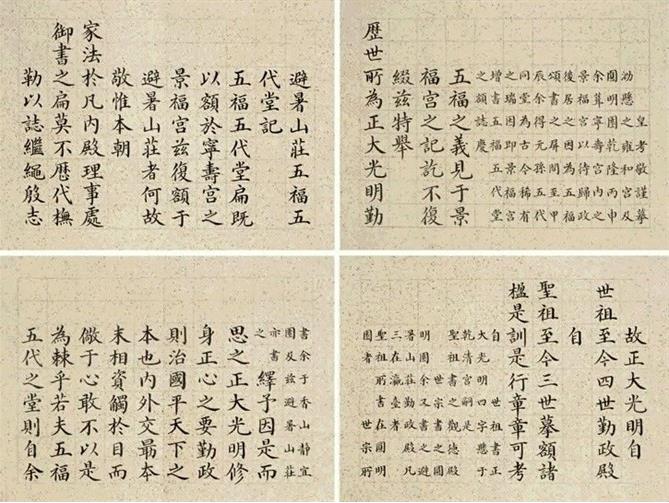 避暑山莊五福五
代堂記
五福五代堂扁既
以額於寧壽宮之
景福宮茲復額于
避暑山莊者何故
敬惟本朝
家法於凡內殿理事處
御書之扁莫不歷代橅
勒以誌繼繩殷志
皇考敬謹摹
勒懸之雍和宮及
圓明園乾隆丙申
余葺寧壽宮內之
景福宮以待歸政
後居之因為五福
頌書之屏間至甲
辰余得元孫五代
同堂為古今稀有
之瑞因即景福宮
增書五福五代堂
之額誌慶
五福之義見于景
福宮之記訖不復
綴茲特舉
歷世所為正大光明勤
故正大光明自
世祖至今四世勤政殿
自
聖祖至今三世摹額諸
楹是訓是行章章可考
自世祖書正
大光明四字懸于
乾清宮嗣是
聖祖書之觀德殿
世宗書之圓
明園余又書之避
暑山莊勤政殿凡
三在瀛臺者
聖祖所書在圓明
園者世宗所
書余于香山靜宜
園及茲避暑山莊
亦書
之
繹予因是而
思之正大光明修
身正心之要勤政
則治國平天下之
本也內外交最本
末相資觸於目而
儆于心敢不以是
為棘乎若夫五福
五代之堂則自余